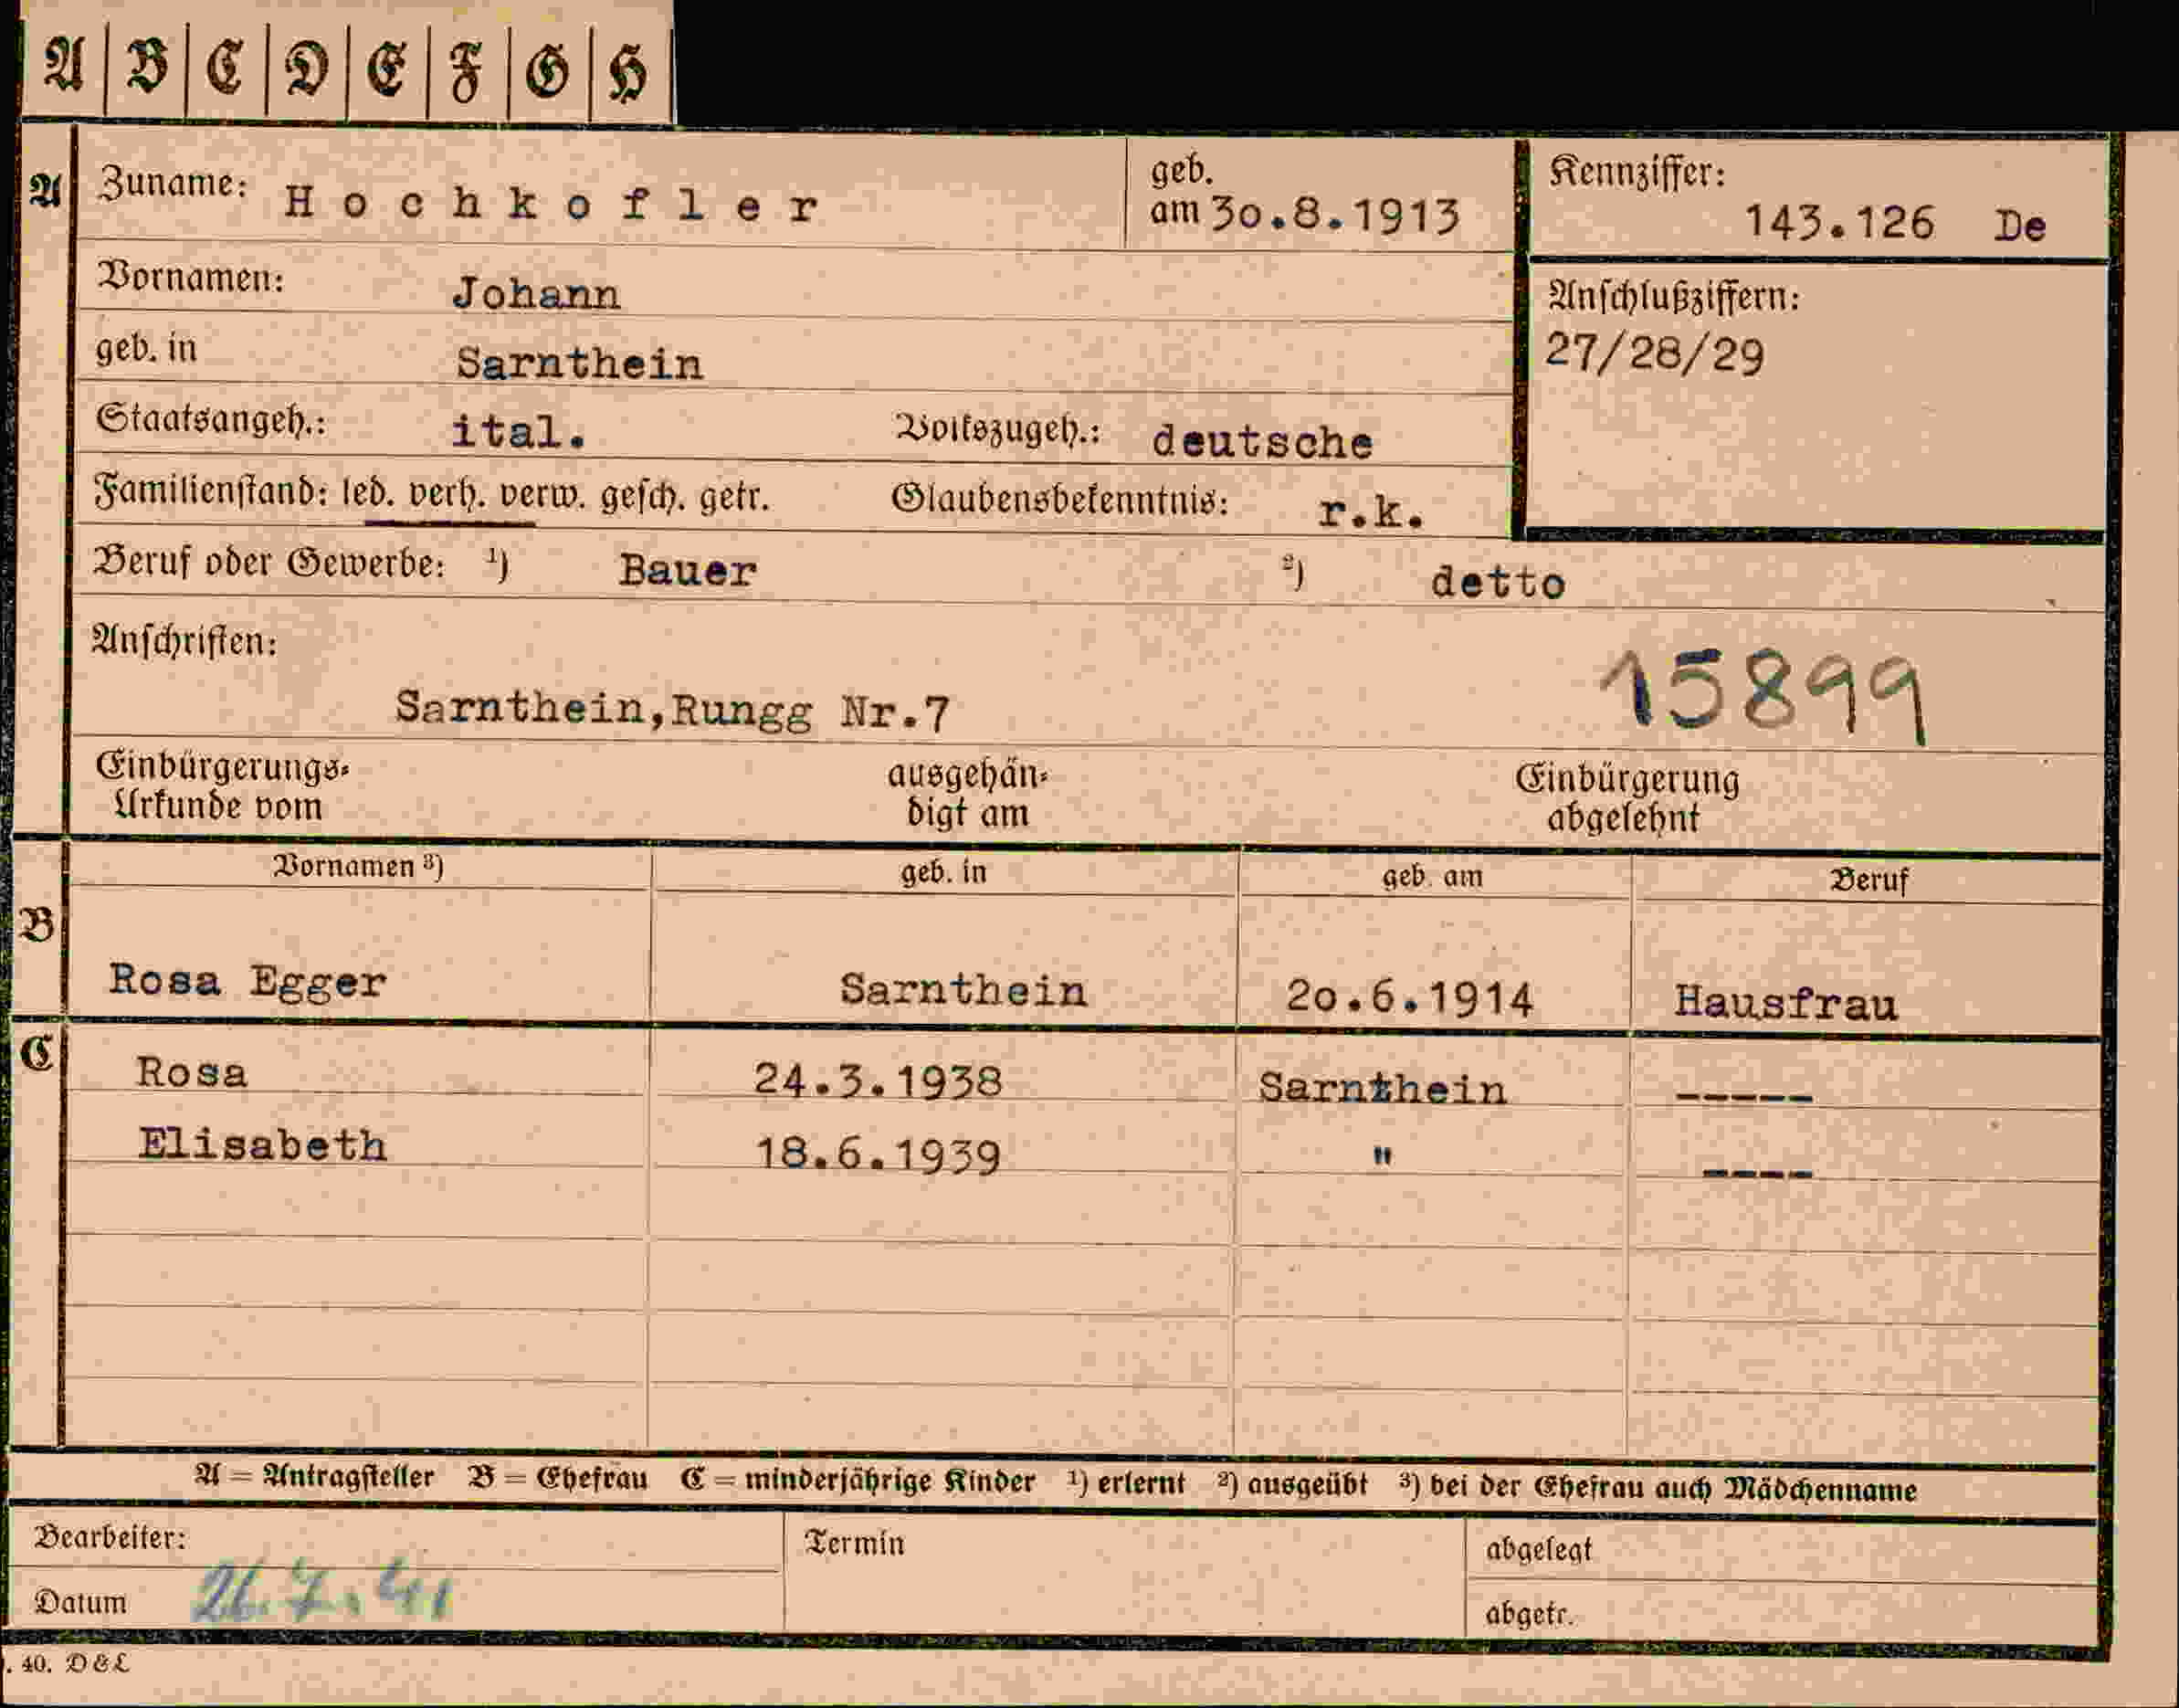 A B C D E F G H
A Zuname: Hochkofler geb. am 30.8.1913 Kennziffer: 143.126 De
Vornamen: Johann
Anschlußziffern: 27/28/29
geb. in Sarnthein
Staatsangeh.: ital. Volkszugeh.: deutsche
Familienstand: led. verh. verw. gesch. getr. Glaubensbekenntnis: r.k.
Beruf oder Gewerbe: ¹) Bauer ²) detto
Anschriften:
15899
Sarnthein,Rungg Nr.7
Einbürgerungs-Urkunde vom ausgehändigt am Einbürgerung abgelehnt
Vornamen ³) geb. in geb. am Beruf
B
Rosa Egger Sarnthein 20.6.1914 Hausfrau
C Rosa 24.3.1938 Sarnthein -----
Elisabeth 18.6.1939 " ----
A = Antragsteller B = Ehefrau C = minderjährige Kinder ¹) erlernt ²) ausgeübt ³) bei der Ehefrau auch Mädchenname
Bearbeiter: Termin abgelegt
Datum 26.7.41 abgetr.
. 40. D & L